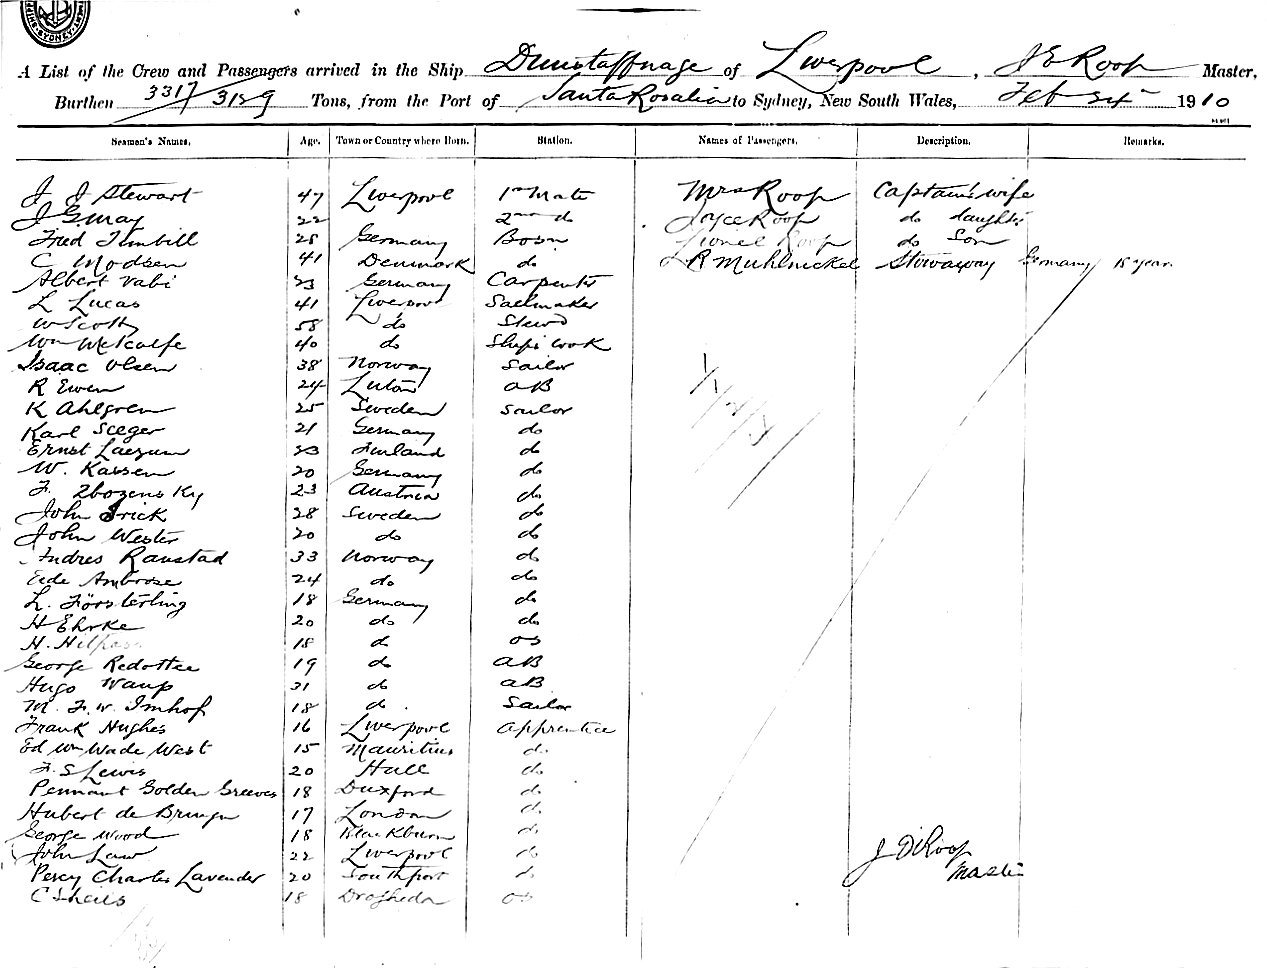 SYDNEY
A List of the Crew and Passengers arrived in the Ship Dunstaffnage of Liverpool, J E Roop Master,
Burthen 3317/3129 Tons, from the Port of Santa Rosalia to Sydney, New South Wales, Feb 24 1910
Seamen's Names. Age. Town or Country where Born. Station. Names of Passengers. Description. Remarks.
J J Stewart 47 Liverpool 1st Mate Mrs Roop Captain's wife
J G May 22 2nd do Joyce Roop do daughter
Fred Timbill 28 Germany Bosn Lionel Roop do Son
C Modsen 41 Denmark do L R Muhlnickel Stowaway Germany 18 year
Albert Vabi 23 Germany Carpenter
L Lucas 41 Liverpool Sailmaker
W Scott 58 do Stewd
Wm Metcalfe 40 do Ships Cook
Isaac Olsen 38 Norway Sailor
R Ewen 24 Luton AB
K Ahlgren 25 Sweden Sailor
Karl Seeger 21 Germany do
Ernst 23 Finland do
W. Kassen 20 Germany do
F. Zbozensky 23 Austria do
John Frick 28 Sweden do
John Wester 20 do do
Andres Ranstad 33 Norway do
Eide Ambrose 24 do do
L. Försterling 18 Germany do
H Ehrke 20 do do
H. 18 do OS
George Redottee 19 do AB
Hugo Waup 31 do AB
M. F. W. Imhof 18 do Sailor
Frank Hughes 16 Liverpool Apprentice
Ed Wm Wade West 15 Mauritius do
F. S Lewis 20 Hull do
Pennant Golden Greeves 18 Duxford do
Hubert de Bruyn 17 London do
George Wood 18 Blackburn do
John Law 22 Liverpool do
Percy Charles Lavender 20 Southport do
C Sheils 18 Drogheda OS
Roop
Master